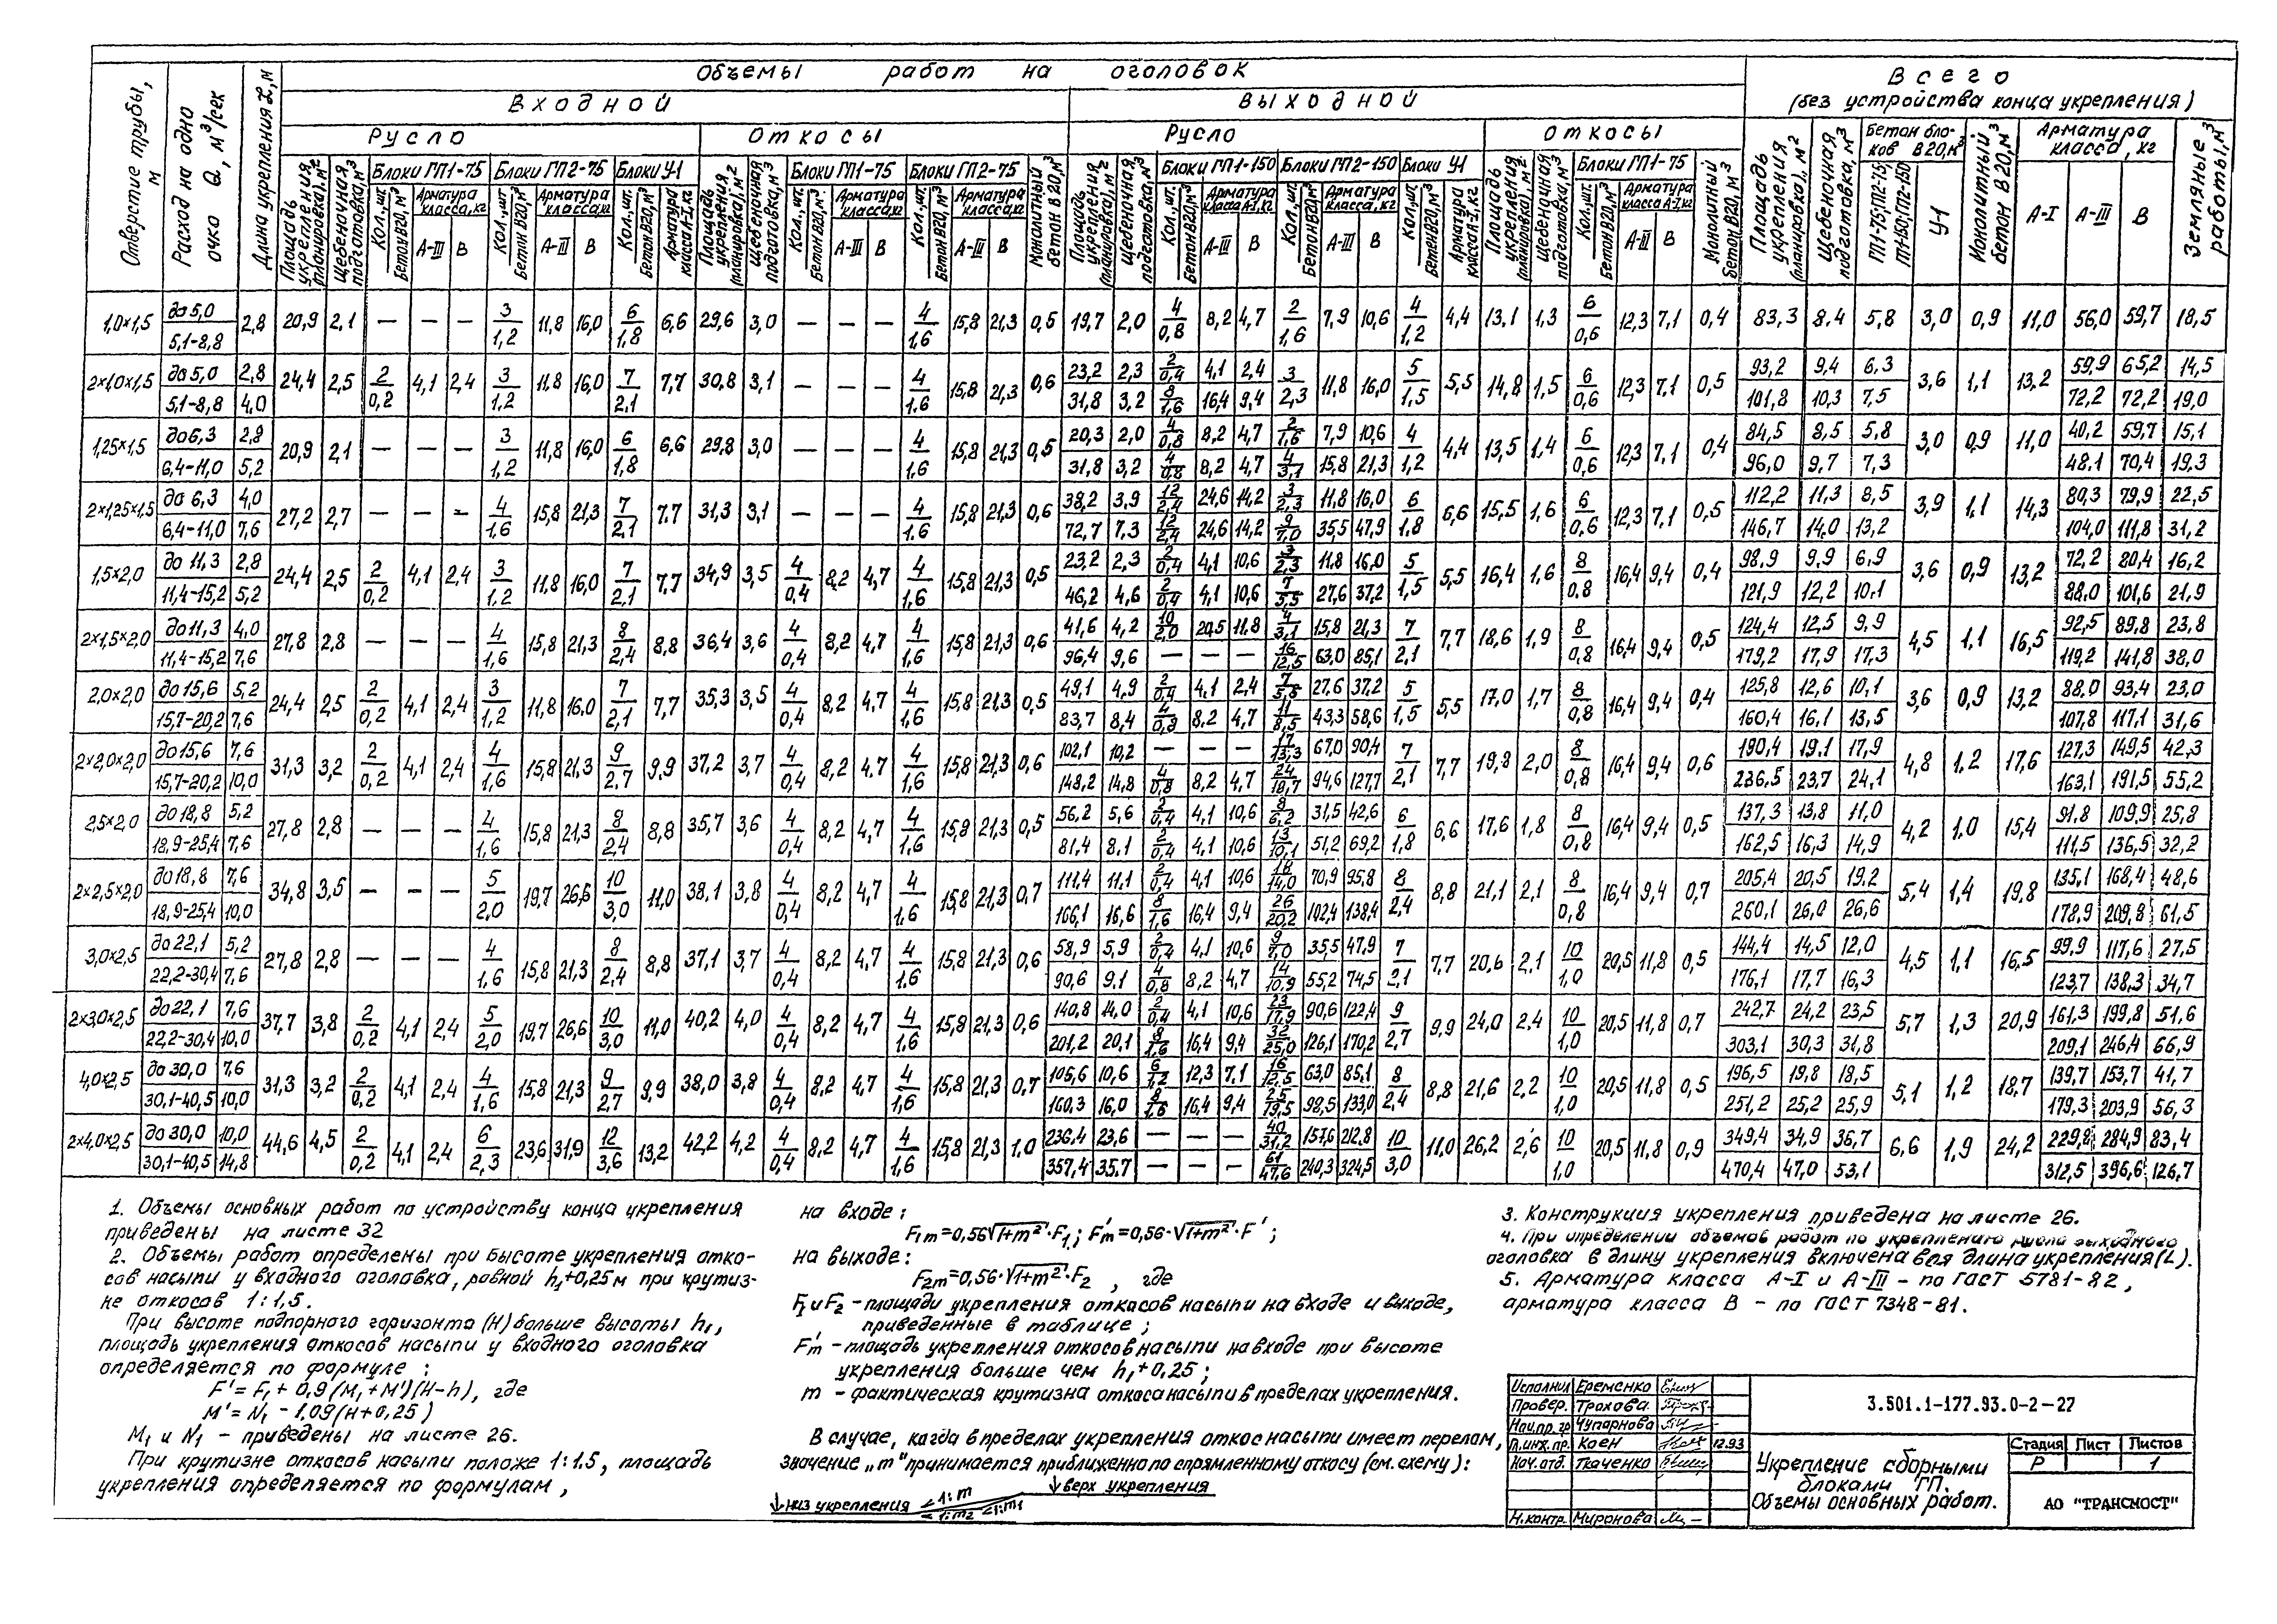 Объемы работ на оголовок
Всего
(без устройства конца укрепления)
Входной
Выходной
Русло
Откосы
Русло
Откосы
Отверстие трубы, м
Расход на одно очко Q, м³/сек
Длина укрепления L, м
Площадь укрепления (планировка), м²
Щебеночная подготовка, м³
Блоки ГП1-75
Блоки ГП2-75
Блоки У-1
Блоки ГП1-75
Блоки ГП2-75
Монолитный бетон В20, м³
Блоки ГП1-150
Блоки ГП2-150
Блоки У1
Блоки ГП1-75
Монолитный бетон В20, м³
Бетон блоков В20, м³
ГП1-75; ГП2-75; ГП1-150; ГП2-150
У-1
Монолитный бетон В20, м³
Арматура класса, кг
А-I
А-III
В
Земляные работы, м³
1,0×1,5 до 5,0 2,8 20,9 2,1 — — — 3/1,2 11,8 16,0 6/1,8 6,6 29,6 3,0 — — — 4/1,6 15,8 21,3 0,5 19,7 2,0 4/0,8 8,2 4,7 2/1,6 7,9 10,6 4/1,2 4,4 13,1 1,3 6/0,6 12,3 7,1 0,4 83,3 8.4 5,8 3,0 0,9 11,0 56,0 59,7 18,5
5,1-8,8
2×1,0×1,5 до 5,0 2,8 24,4 2,5 2/0,2 4,1 2,4 3/1,2 11,8 16,0 7/2,1 7,7 30,8 3,1 — — — 4/1,6 15,8 21,3 0,6 23,2 2,3 2/0,4 4,1 2,4 3/2,3 11,8 16,0 5/1,5 5,5 14,8 1,5 6/0,6 12,3 7,1 0,5 93,2 9,4 6,3 3,6 1,1 13,2 59,9 65,2 14,5
5,1-8,8 4,0 31,8 3,2 8/1,6 16,4 9,4 101,8 10,3 7,5 72,2 72,2 19,0
1,25×1,5 до 6,3 2,8 20,9 2,1 — — — 3/1,2 11,8 16,0 6/1,8 6,6 29,8 3,0 — — — 4/1,6 15,8 21,3 0,5 20,3 2,0 4/0,8 8,2 4,7 2/1,6 7,9 10,6 4/1,2 4,4 13,5 1,4 6/0,6 12,3 7,1 0,4 84,5 8,5 5,8 3,0 0,9 11,0 40,2 59,7 15,1
6,4-11,0 5,2 31,8 3,2 4/0,8 8,2 4,7 4/3,1 15,8 21,3 96,0 9,7 7,3 48.1 70,4 19,3
2×1,25×1,5 до 6,3 4,0 27,2 2,7 — — — 4/1,6 15,8 21,3 7/2,1 7,7 31,3 3,1 — — — 4/1,6 15,8 21,3 0,6 38,2 3,9 12/2,4 24,6 14,2 3/2,3 11,8 16,0 6/1.8 6,6 15,5 1,6 6/0,6 12,3 7,1 0,5 112,2 11,3 8,5 3,9 1,1 14,3 80,3 79,9 22,5
6,4-11,0 7,6 72,7 7,3 12/2,4 24,6 14,2 9/7,0 35,5 47,9 146,7 14,0 13,2 104,0 111,8 31,2
1,5×2,0 до 11,3 2,8 24,4 2,5 2/0,2 4,1 2,4 3/1,2 11,8 16,0 7/2,1 7,7 34,9 3,5 4/0,4 8,2 4,7 4/1,6 15,8 21,3 0,5 23,2 2,3 2/0,4 4,1 10,6 3/2,3 11,8 16,0 5/1,5 5,5 16,4 1,6 8/0,8 16,4 9,4 0,4 98,9 9,9 6,9 3,6 0,9 13,2 72,2 80,4 16,2
11,4-15,2 5,2 46,2 4,6 2/0,4 4,1 10,6 7/5,5 27,6 37,2 121,9 12,2 10,1 88,0 101,6 21,9
2×1,5×2,0 до 11,3 4,0 27,8 2,8 — — — 4/1,6 15,8 21,3 8/2,4 8,8 36,4 3,6 4/0,4 8,2 4,7 4/1,6 15,8 21,3 0,6 41,6 4,2 10/2,0 20,5 11,8 4/3,1 15,8 21,3 7/2,1 7,7 18,6 1,9 8/0,8 16,4 9,4 0,5 124,4 12,5 9,9 4,5 1,1 16,5 92,5 89,8 23,8
11,4-15,2 7,6 96,4 9,6 — — — 16/12,5 63,0 85,1 179,2 17,9 17,3 119,2 141,8 38,0
2,0×2,0 до 15,6 5,2 24,4 2,5 2/0,2 4,1 2,4 3/1,2 11,8 16,0 7/2,1 7,7 35,3 3,5 4/0,4 8,2 4,7 4/1,6 15,8 21,3 0,5 49,1 4,9 2/0,4 4,1 2,4 7/5,5 27,6 37,2 5/1,5 5,5 17,0 1,7 8/0,8 16,4 9,4 0,4 125,8 12,6 10,1 3,6 0,9 13,2 88,0 93,4 23,0
15,7-20,2 7,6 83,7 8,4 4/0,8 8,2 4,7 11/8,5 43,3 58,6 160,4 16,1 13,5 107,8 117,1 31,6
2×2,0×2,0 до 15,6 7,6 31,3 3,2 2/0,2 4,1 2,4 4/1,6 15,8 21,3 9/2,7 9,9 37,2 3,7 4/0,4 8,2 4,7 4/1,6 15,8 21,3 0,6 102,1 10,2 — — — 17/13,3 67,0 90,4 7/2,1 7,7 19,8 2,0 8/0,8 16,4 9,4 0,6 190,4 19,1 17,9 4,8 1,2 17,6 127,3 149,5 42,3
15,7-20,2 10,0 148,2 14,8 4/0,8 8,2 4,7 24/18,7 94,6 127,7 236,5 23,7 24,1 163,1 191,5 55,2
2,5×2,0 до 18,8 5,2 27,8 2,8 — — — 4/1,6 15,8 21,3 8/2,4 8,8 35,7 3,6 4/0,4 8,2 4,7 4/1,6 15,8 21,3 0,5 56,2 5,6 2/0,4 4,1 10,6 8/6,2 31,5 42,6 6/1,8 6,6 17,6 1,8 8/0,8 16,4 9,4 0,5 137,3 13,8 11,0 4,2 1.0 15,4 91,8 109,9 25,8
18,9-25,4 7,6 81,4 8.1 2/0,4 4,1 10,6 13/10,1 51,2 69,2 162,5 16,3 14,9 111,5 136,5 32,2
2×2,5×2,0 до 18,8 7,6 34,8 3,5 — — — 5/2,0 19,7 26,6 10/3,0 11,0 38,1 3,8 4/0,4 8,2 4,7 4/1,6 15,8 21,3 0,7 111,4 11,1 2/0,4 4,1 10,6 18/14,0 70,9 95,8 8/2,4 8,8 21,1 2,1 8/0,8 16,4 9,4 0,7 205,4 20,5 19,2 5,4 1,4 19,8 135,1 168,4 48,6
18,9-25,4 10,0 166,1 16,6 8/1,6 16,4 9,4 26/20,2 102,4 138,4 260,1 26,0 26,6 178,9 209,8 61,5
3,0×2,5 до 22,1 5,2 27,8 2,8 — — — 4/1,6 15,8 21,3 8/2,4 8,8 37,1 3,7 4/0,4 8,2 4,7 4/1.6 15,8 21,3 0,6 58,9 5,9 2/0,4 4,1 10,6 9/7,0 35,5 47,9 7/2,1 7,7 20,6 2,1 10/1,0 20,5 11,8 0,5 144,4 14,5 12,0 4,5 1,1 16,5 99,9 117,6 27,5
22,2-30,4 7,6 90,6 9.1 4/0,8 8,2 4,7 14/10,9 55,2 74,5 176,1 17,7 16,3 123,7 138,3 34,7
2×3,0×2,5 до 22,1 7,6 37,7 3,8 2/0,2 4,1 2,4 5/2,0 19,7 26,6 10/3,0 11,0 40,2 4,0 4/0,4 8,2 4,7 4/1,6 15,8 21,3 0,6 140,8 14,0 2/0,4 4,1 10,6 23/17,9 90,6 122,4 9/2,7 9,9 24,0 2,4 10/1,0 20,5 11,8 0,7 242,7 24,2 23,5 5,7 1,3 20,9 161,3 199,8 51,6
22,2-30,4 10,0 201,2 20,1 8/1,6 16,4 9,4 32/25,0 126,1 170,2 303,1 30,3 31,8 209,1 246,4 66,9
4,0×2,5 до 30,0 7,6 31,3 3,2 2/0,2 4,1 2,4 4/1,6 15,8 21,3 9/2,7 9,9 38,0 3,8 4/0,4 8,2 4,7 4/1,6 15,8 21,3 0,7 105,6 10,6 6/1,2 12,3 7,1 16/12,5 63,0 85,1 8/2,4 8,8 21,6 2,2 10/1,0 20,5 11,8 0,5 196,5 19,8 18,5 5,1 1,2 18,7 139,7 153,7 41,7
30,1-40,5 10,0 160,3 16,0 8/1,6 16,4 9,4 25/19,5 98,5 133,0 251,2 25,2 25,9 179,3 203,9 56,3
2×4,0×2,5 до 30,0 10,0 44,6 4,5 2/0,2 4,1 2,4 6/2,3 23,6 31,9 12/3,6 13,2 42,2 4,2 4/0,4 8,2 4,7 4/1,6 15,8 21,3 1.0 236,4 23,6 — — — 40/31,2 157,6 212,8 10/3,0 11,0 26,2 2,6 10/1,0 20,5 11,8 0,9 349,4 34,9 36,7 6,6 1,9 24,2 229,8 284,9 83,4
30,1-40,5 14,8 357,4 35.7 — — — 61/47,6 240,3 324,5 470,4 47,0 53,1 312,5 396,6 126,7
1. Объемы основных работ по устройству конца укрепления
приведены на листе 32
2. Объемы работ определены при высоте укрепления отко-
сов насыпи у входного оголовка, равной h₁+0,25м при крутиз-
не откосов 1:1,5.
При высоте подпорного горизонта (H) больше высоты h₁,
площадь укрепления откосов насыпи у входного оголовка
определяется по формуле:
F'= F₁ + 0,9(M₁+M')(H-h), где
M'= N₁ - 1,09(H+0,25)
M₁ и N₁ - приведены на листе 26.
При крутизне откосов насыпи положе 1:1.5, площадь
укрепления определяется по формулам,
на входе:
F₁m=0,56√1+m²·F₁; F'm=0,56·√1+m²·F';
на выходе:
F₂m=0,56·√1+m²·F₂, где
F₁ и F₂ - площади укрепления откосов насыпи на входе и выходе,
приведенные в таблице;
F'm - площадь укрепления откосов насыпи на входе при высоте
укрепления больше чем h₁+0,25;
m - фактическая крутизна откоса насыпи в пределах укрепления.
В случае, когда в пределах укрепления откос насыпи имеет перелом,
значение „m" принимается приближенно по спрямленному откосу (см. схему):
↓низ укрепления 1:m 1:m₂ 1:m₁ ↓верх укрепления
3. Конструкция укрепления приведена на листе 26.
4. При определении объемов работ по укреплению русла выходного
оголовка в длину укрепления включена вся длина укрепления (L).
5. Арматура класса А-I и А-III - по ГОСТ 5781-82,
арматура класса В - по ГОСТ 7348-81.
Исполнил Еременко
Провер. Трохова
Нач.пр.гр Чупарнова
Гл.инж.пр. Коен 12.93
Нач.отд. Ткаченко
Н.контр. Миронова
3.501.1-177.93.0-2-27
Укрепление сборными
блоками ГП.
Объемы основных работ.
Стадия Лист Листов
Р 1
АО "ТРАНСМОСТ"